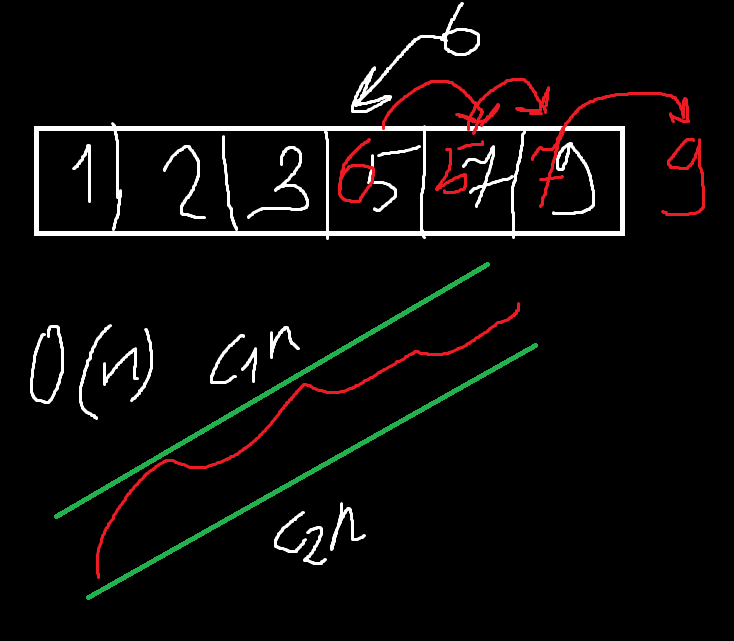 6
1 2 3 6 5 5 7 7 9 9
O(n) c1n
c2n